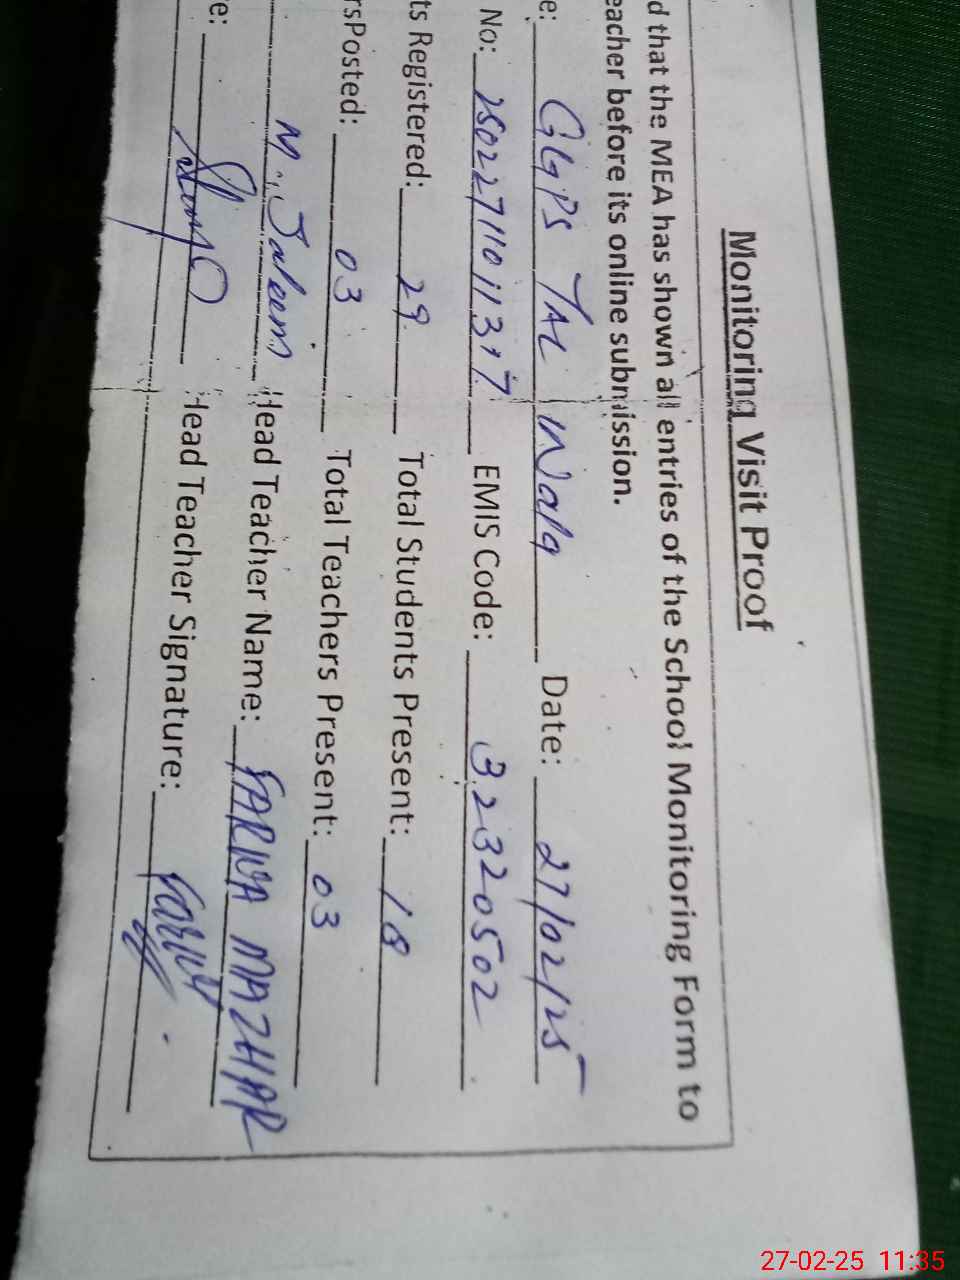 Monitoring Visit Proof
d that the MEA has shown all entries of the School Monitoring Form to
eacher before its online submission.
e: GGPS JAL Wala Date: 27/02/25
No: EMIS Code: 33320502
ts Registered: 29 Total Students Present: 18
rsPosted: 03 Total Teachers Present: 03
M. Saleem Head Teacher Name: FARWA MAZHAR
e: Head Teacher Signature: Farwa
27-02-25 11:35